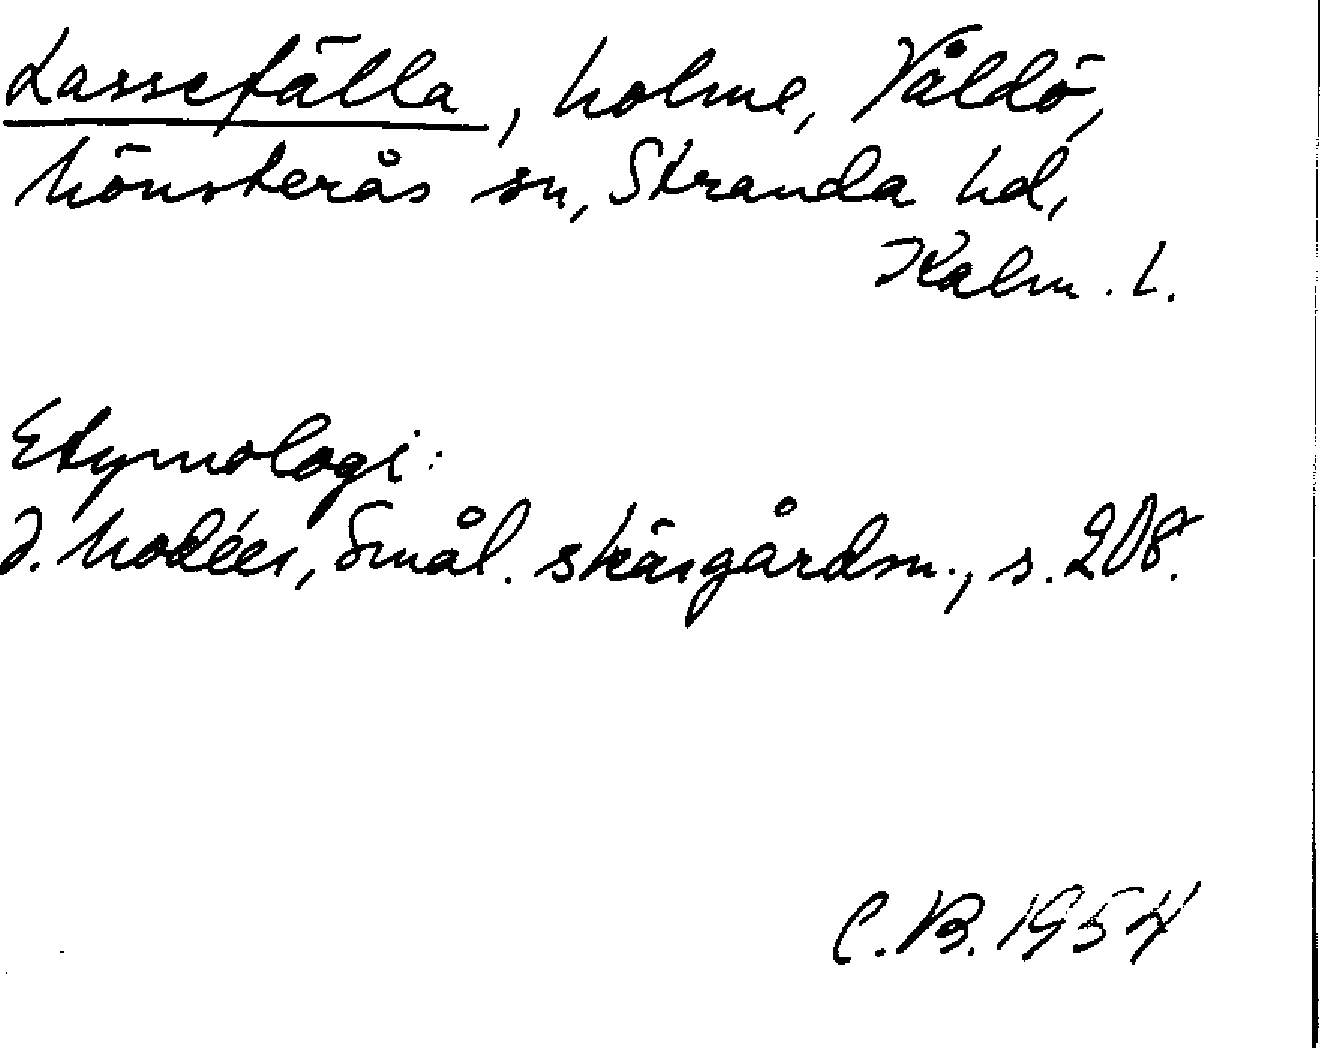 Lassefälla, holme, Våldö,
Mönsterås sn, Stranda hd,
Kalm. l.
Etymologi:
I. Modéer, Smål. skärgårdsn., s. 208.
C.B. 1954